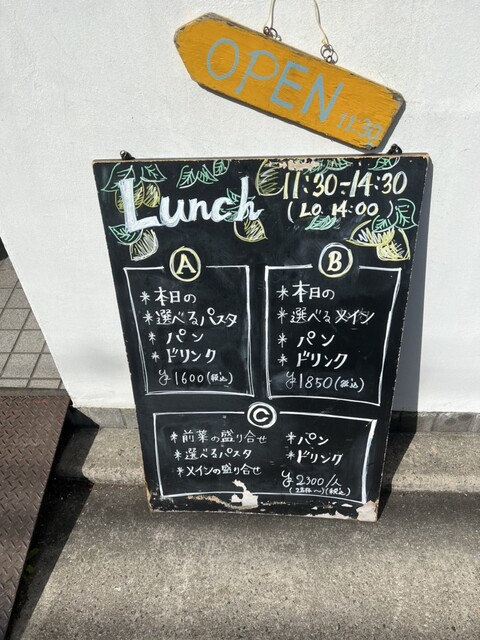 OPEN
11:30
Lunch
11:30-14:30
(L.O. 14:00)
A
*本日の
*選べるパスタ
*パン
*ドリンク
¥1600(税込)
B
*本日の
*選べるメイン
*パン
*ドリンク
¥1850(税込)
C
*前菜の盛り合せ
*選べるパスタ
*メインの盛り合せ
*パン
*ドリンク
¥2500/人
(2名様〜)(税込)